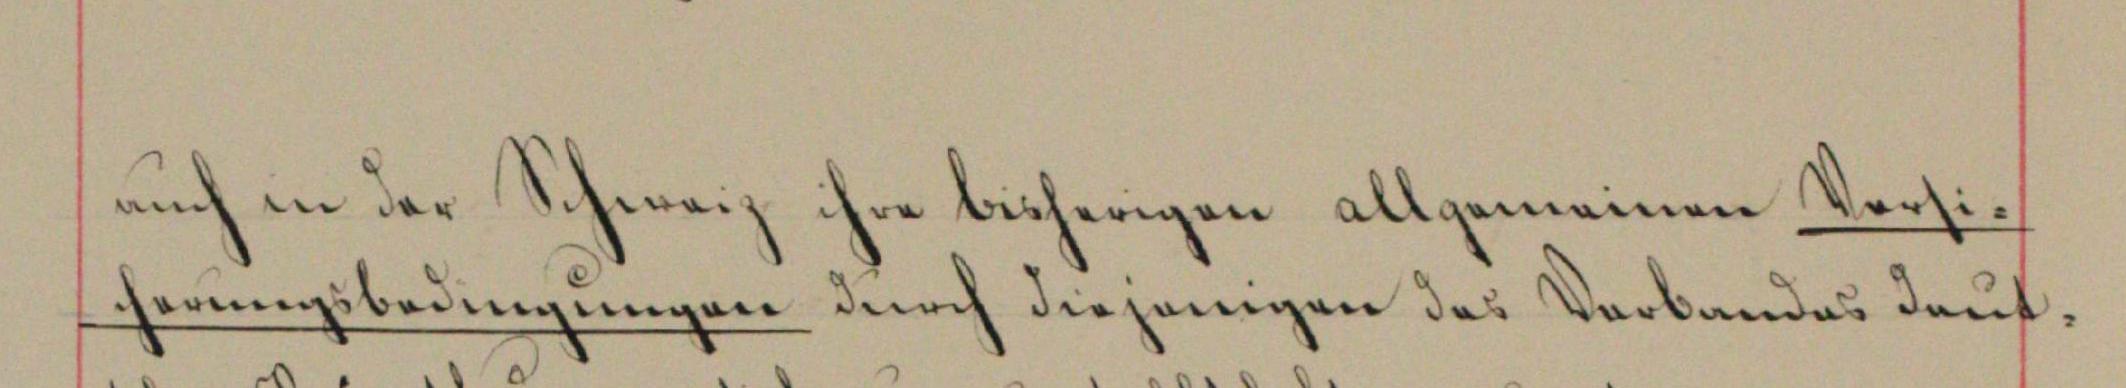 auch in der Schweiz ihre bisherigen allgemeinen Versi-
cherungsbedingungen durch diejenigen des Verbandes deut-